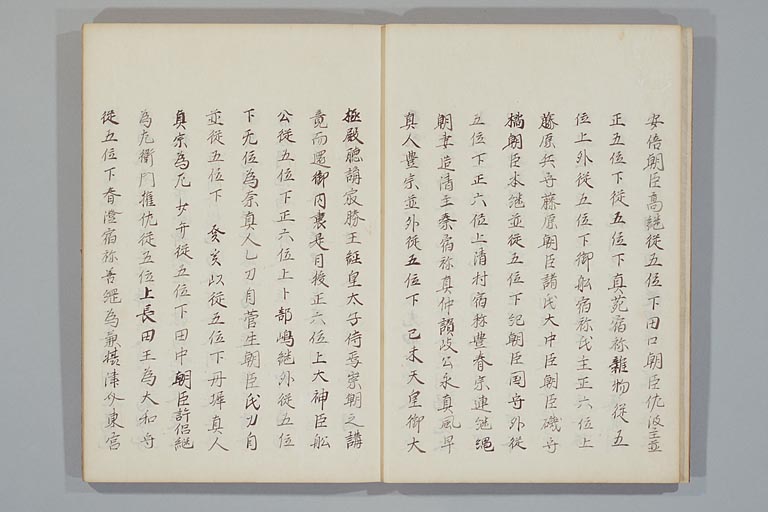 安倍朝臣高継従五位下田口朝臣仇波主並
正五位下従五位下真苑宿祢雑物従五
位上外従五位下御舩宿祢氏主正六位上
藤原 守藤原朝臣諸氏大中臣朝臣磯守
橘朝臣本継並従五位下紀朝臣国守外従
五位下正六位上清村宿祢豊春宗連継縄
朝妻造清主秦宿祢真仲讃岐公永真風早
真人豊宗並外従五位下 己未天皇御大
極殿聴講寂勝王経皇太子侍焉崇朝之講
竟而還御内裏是日授正六位上大神臣舩
公従五位下正六位上卜部嶋継外従五位
下无位為奈真人乙刀自菅生朝臣氏刀自
並従五位下 癸亥以従五位下丹墀真人
真宗為 従五位下田中朝臣許侶継
為左衛門権佐従五位上長田王為大和守
従五位下春澄宿祢善縄為兼摂津介東宮